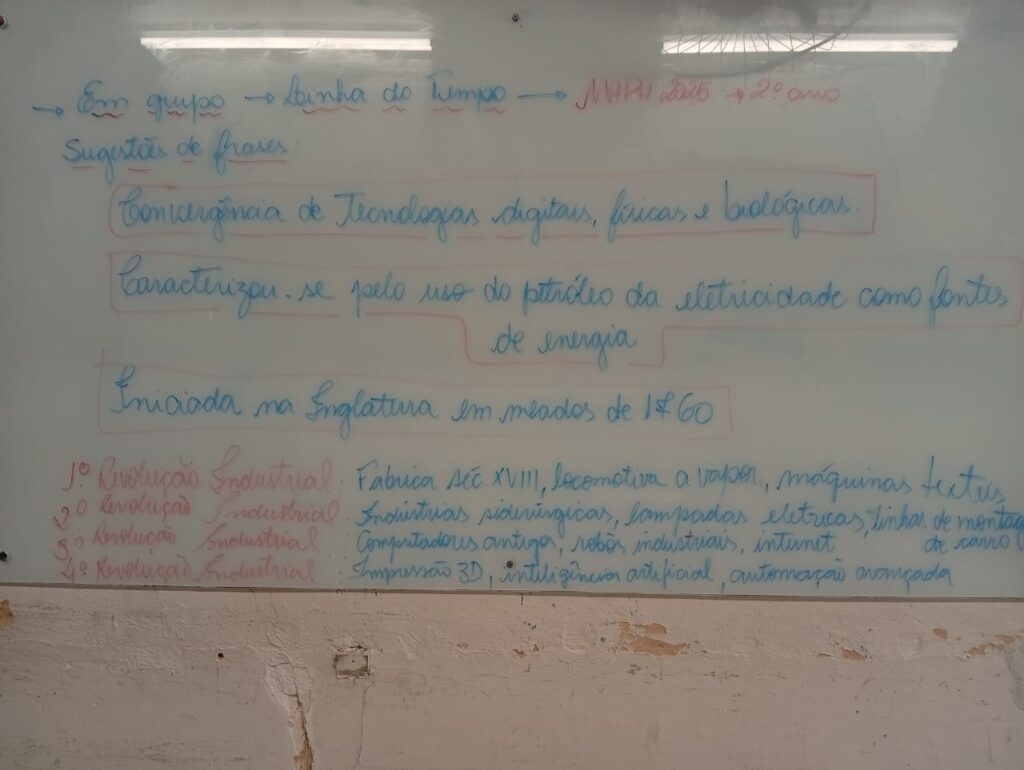 → Em grupo → Linha do Tempo → 2025 → 2º ano
Sugestões de frases:
Convergência de Tecnologias digitais, físicas e biológicas.
Caracterizou-se pelo uso do petróleo da eletricidade como fontes
de energia
Iniciada na Inglaterra em meados de 1760
1º Revolução Industrial: Fabrica séc XVIII, locomotiva a vapor, máquinas textis
2º Revolução Industrial: Industrias siderúrgicas, lampadas eletricas, linhas de montagem
3º Revolução Industrial: Computadores antigos, robôs industriais, internet de carro
4º Revolução Industrial: Impressão 3D, inteligência artificial, automação avançada